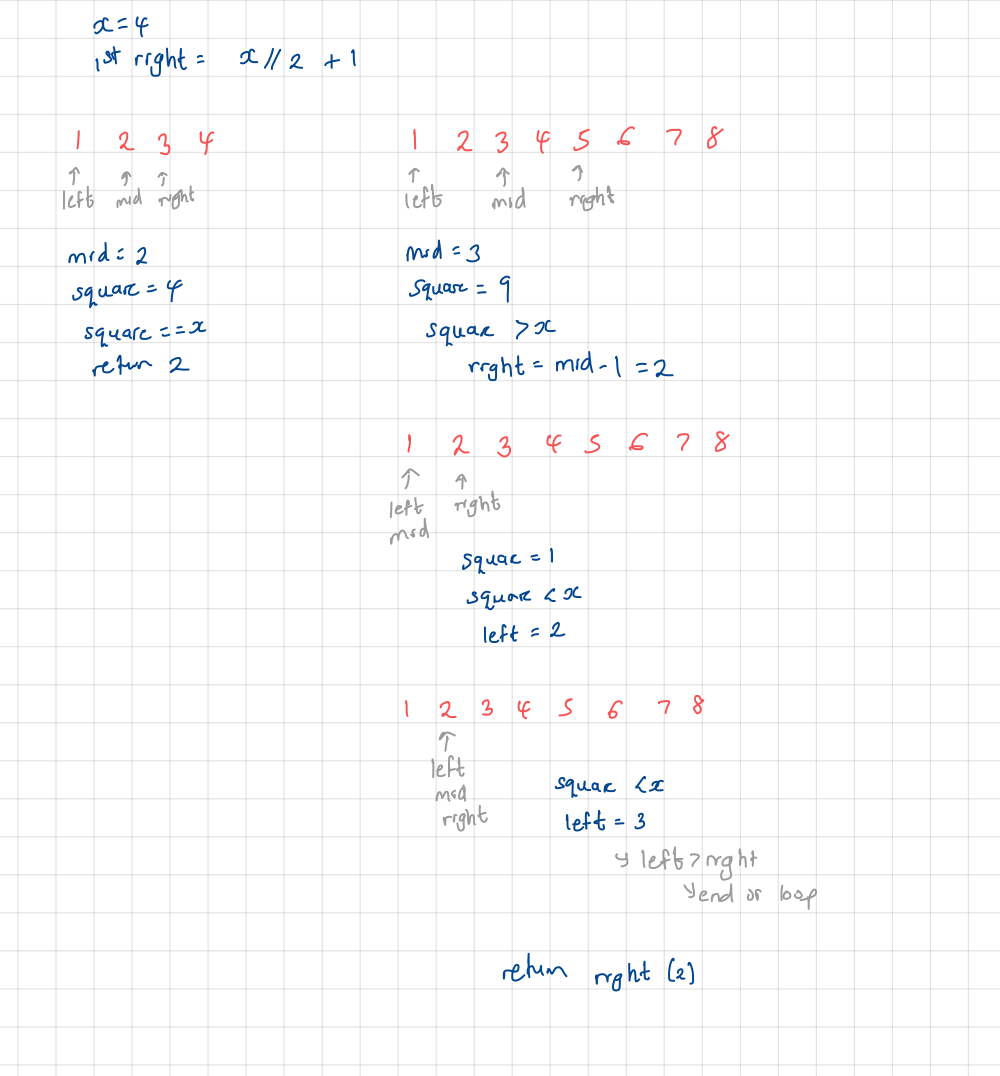 x = 4
1st right = x // 2 + 1
1 2 3 4
left mid right
mid = 2
square = 4
square == x
return 2
1 2 3 4 5 6 7 8
left mid right
mid = 3
square = 9
square > x
right = mid - 1 = 2
1 2 3 4 5 6 7 8
left right
mid
square = 1
square < x
left = 2
1 2 3 4 5 6 7 8
left
mid
right
square < x
left = 3
↳ left > right
↳ end of loop
return right (2)